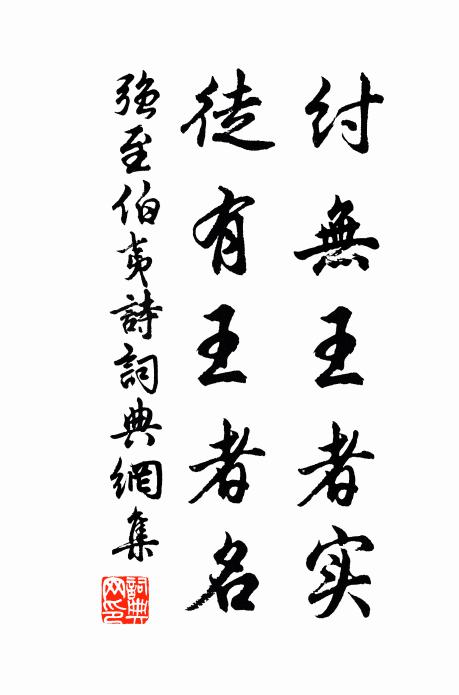 纣無王者实
徒有王者名
強至伯夷詩詞典網集
詞典网印